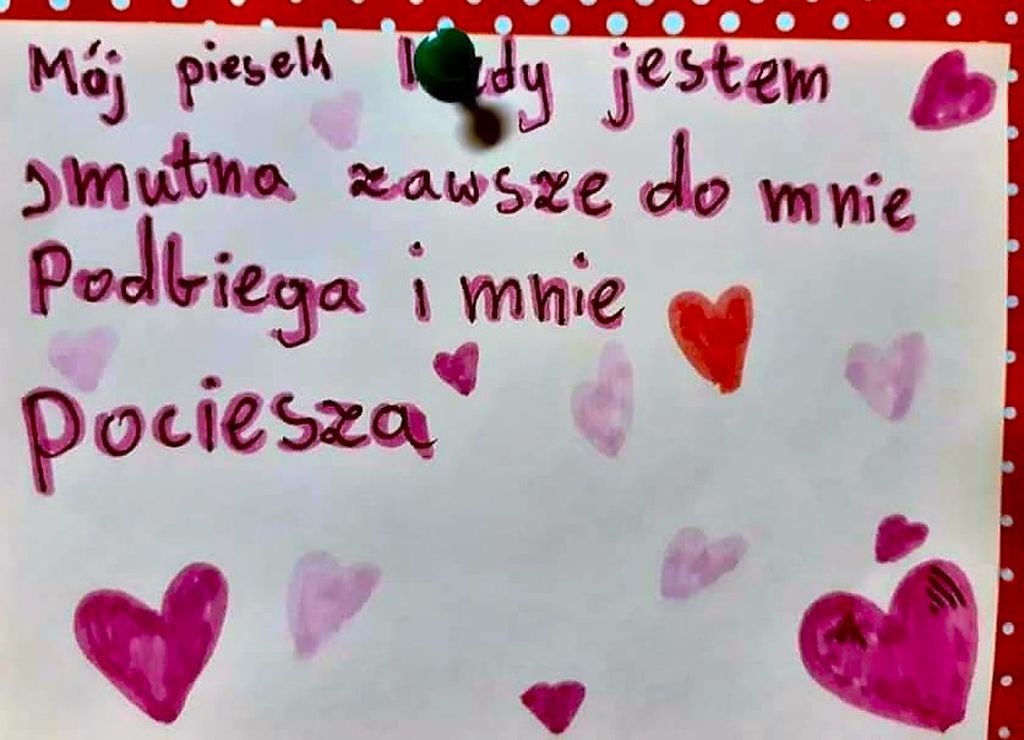 Mój piesek jestem
smutna zawsze do mnie
Podbiega i mnie
pociesza